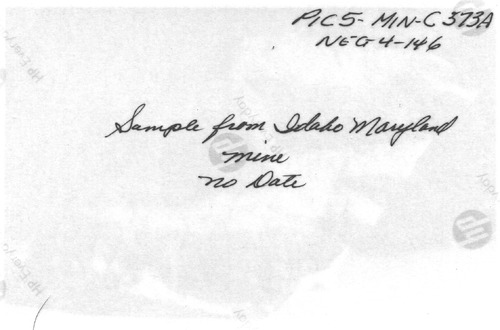 PIC5-MIN-C373A
NEG4-146
Sample from Idaho Maryland
mine
No Date
hp
hp
HP Every